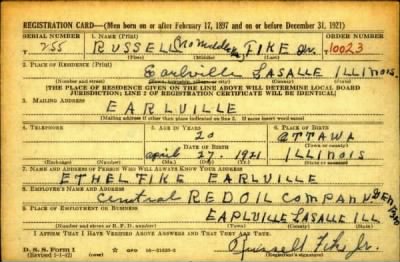 REGISTRATION CARD—(Men born on or after February 17, 1897 and on or before December 31, 1921)
SERIAL NUMBER 1. NAME (Print) ORDER NUMBER
255 RUSSELL (No middle) FIKE Jr. 10023
(First) (Middle) (Last)
2. PLACE OF RESIDENCE (Print)
Earlville LaSALLE ILLINOIS.
(Number and street) (Town, township, village, or city) (County) (State)
[THE PLACE OF RESIDENCE GIVEN ON THE LINE ABOVE WILL DETERMINE LOCAL BOARD
JURISDICTION; LINE 2 OF REGISTRATION CERTIFICATE WILL BE IDENTICAL]
3. MAILING ADDRESS
EARLVILLE
[Mailing address if other than place indicated on line 2. If same insert word same]
4. TELEPHONE 5. AGE IN YEARS 6. PLACE OF BIRTH
20 OTTAWA
DATE OF BIRTH (Town or county)
April 27. 1921 ILLINOIS
(Exchange) (Number) (Mo.) (Day) (Yr.) (State or country)
7. NAME AND ADDRESS OF PERSON WHO WILL ALWAYS KNOW YOUR ADDRESS
ETHEL FIKE EARLVILLE
8. EMPLOYER'S NAME AND ADDRESS
Central RED OIL COMPANY
9. PLACE OF EMPLOYMENT OR BUSINESS
EARLVILLE LaSALLE ILL
(Number and street or R. F. D. number) (Town) (County) (State)
I AFFIRM THAT I HAVE VERIFIED ABOVE ANSWERS AND THAT THEY ARE TRUE.
D. S. S. Form 1
(Revised 1-1-42) GPO
Russell Fike Jr.